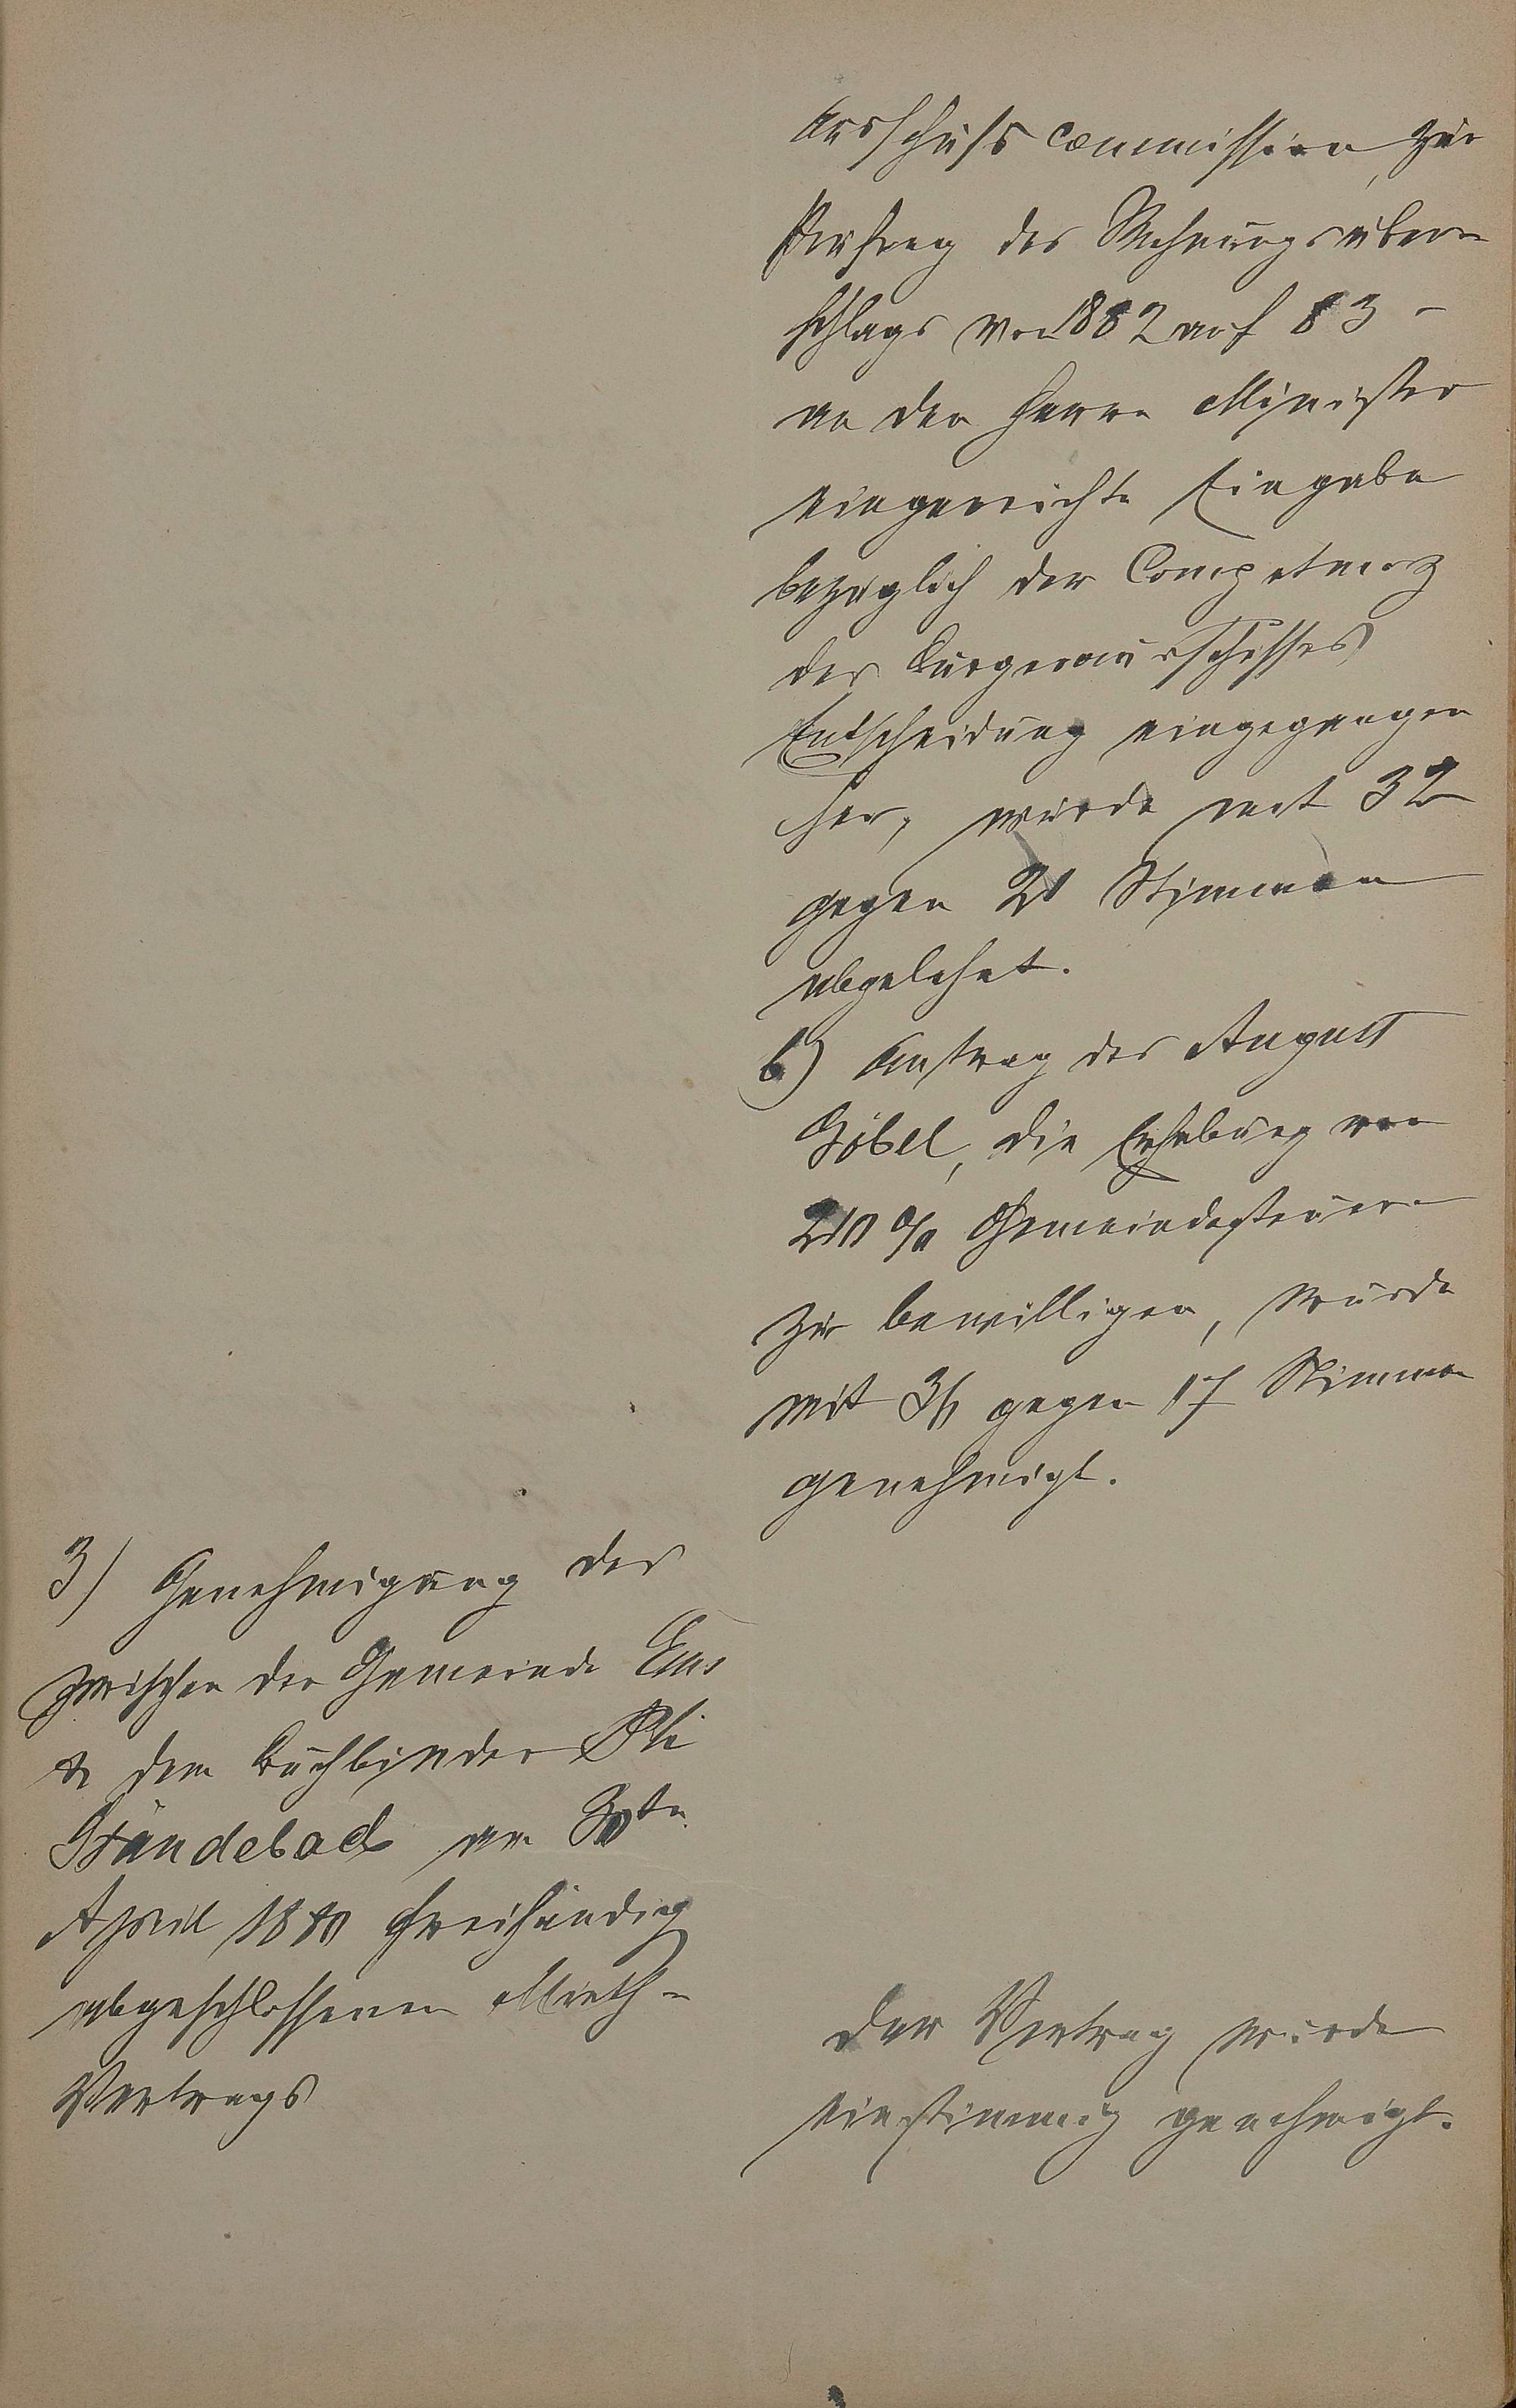 Ausschuss commission, zur
Prüfung des Rechnungsüber-
schlags von 1882 auf 83 -
an den Herrn Minister
eingereichte Eingabe
bezüglich der Competenz
des Bürgerausschusses
Entscheidung eingegangen
sei, wurde mit 32
gegen 21 Stimmen
abgelehnt.
b) Antrag des August
Göbel, die Erhebung von
% Gemeindesteuern
zu bewilligen, wurde
mit 36 gegen 17 Stimmen
genehmigt.
3) Genehmigung des
zwischen der Gemeinde Ems
& dem Buchbinder
Ständebach am 30ten
April freihändig
abgeschlossenen Mieth-
Vertrags
Der Vertrag wurde
einstimmig genehmigt.